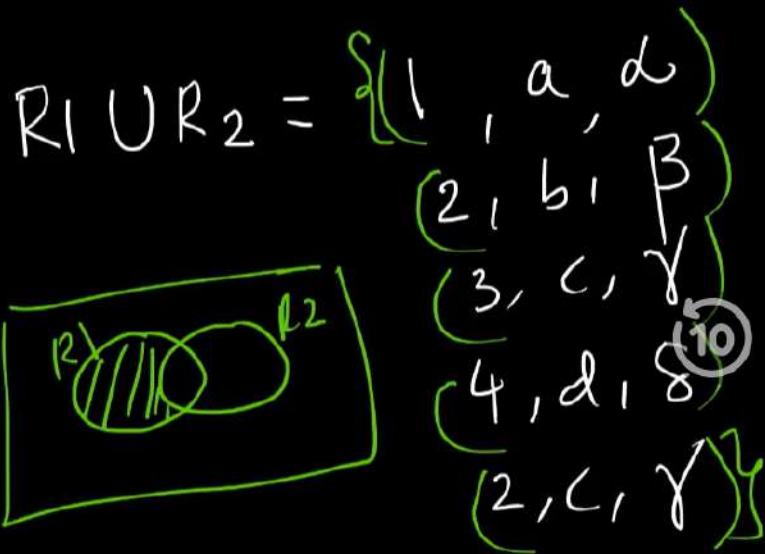 R1 ∪ R2 = {(1, a, α)
(2, b, β)
(3, c, γ)
10
(4, d, δ)
(2, c, γ)}
R1
R2